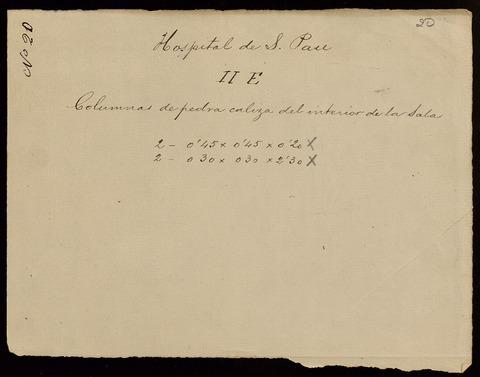 20
Nº 20
Hospital de S. Pau
II E
Columnas de pedra caliza del interior de la Sala
2 - 0'45 x 0'45 x 0'20 X
2 - 0 30 x 0 30 x 2'30 X